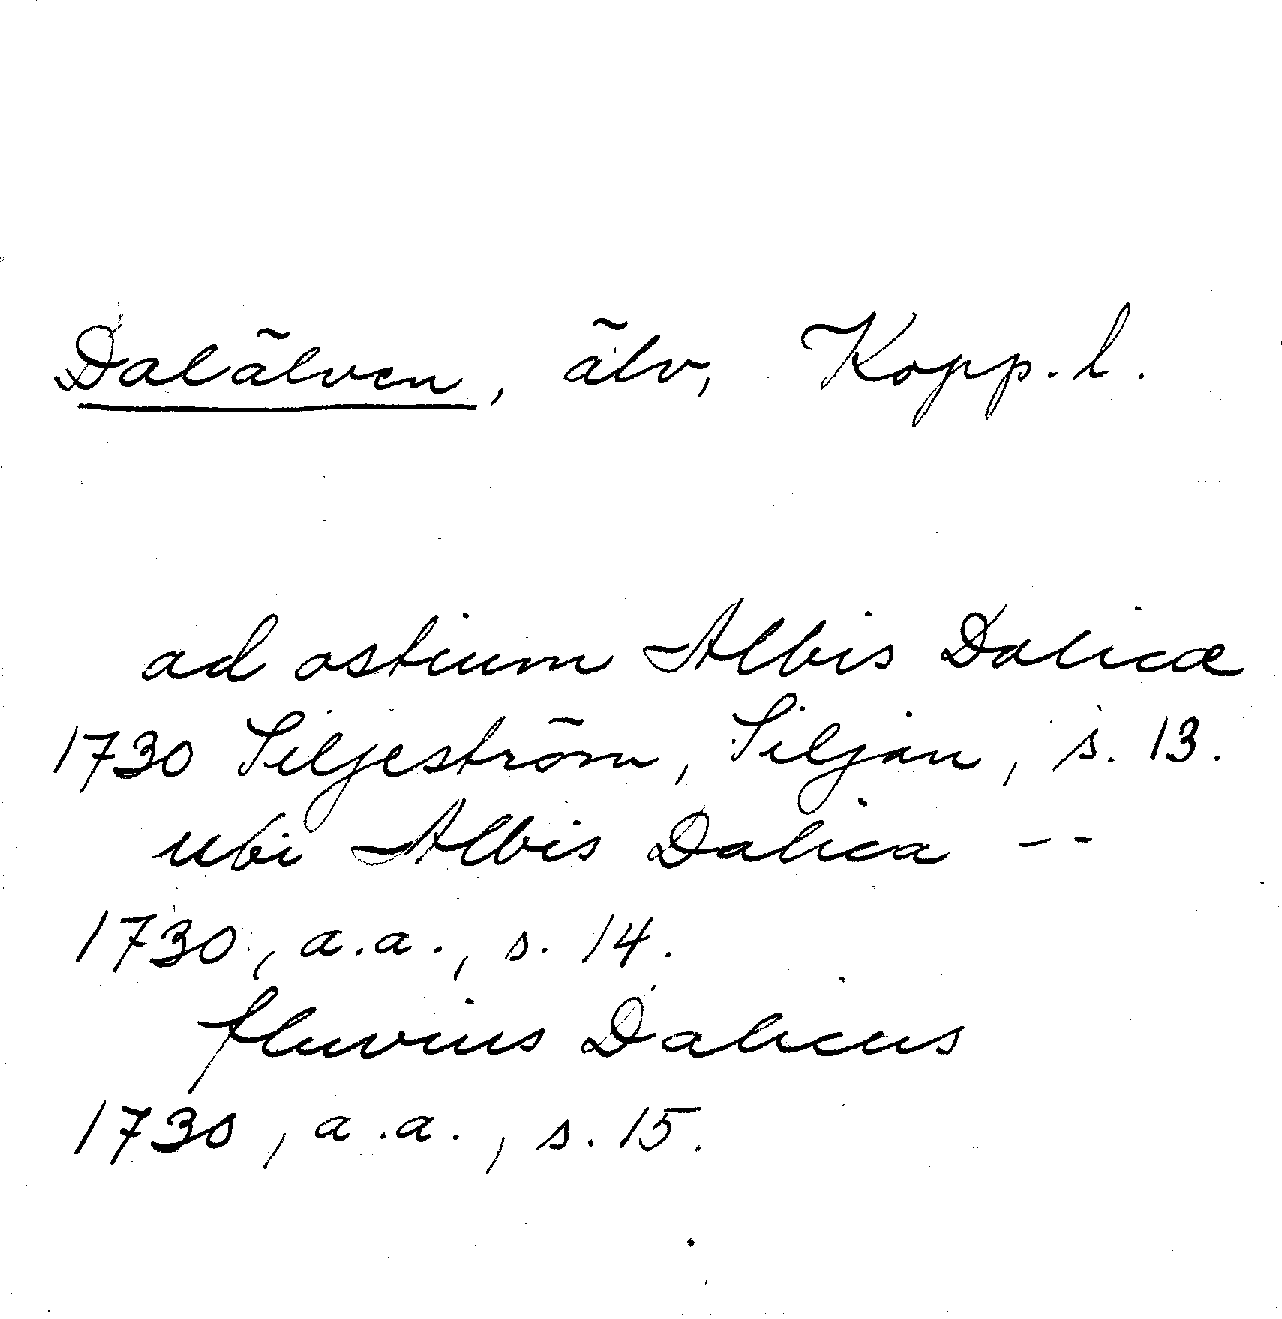 Dalälven, älv, Kopp. l.
ad ostium Albis Dalicæ
1730 Siljeström, Siljan, s. 13.
ubi Albis Dalica --
1730, a.a., s. 14.
fluvius Dalicus
1730, a.a., s. 15.